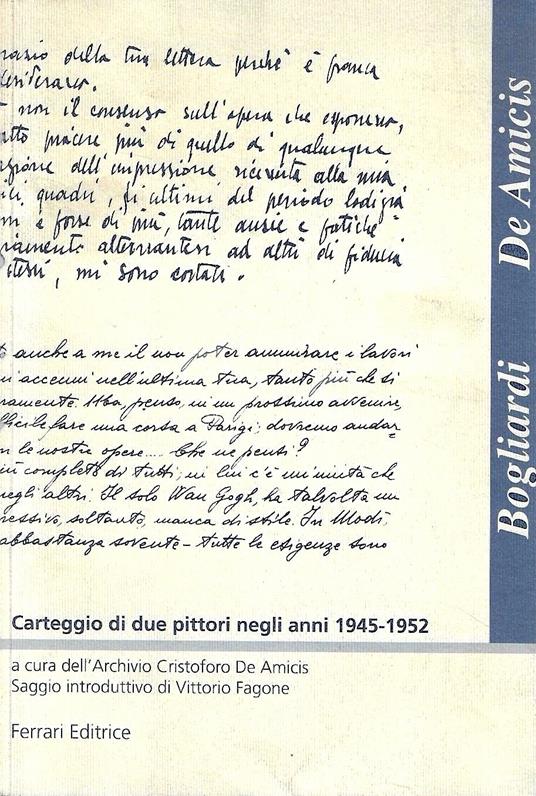 razio della tua lettera perchè è franca
desideravo.
non il consenso sull'opera che esponevo,
tutto piacere più di quello di qualunque
azione dell'impressione ricevuta alla mia
quadri, gli ultimi del periodo
e forse di più, tante ansie e fatiche
riamente alternantesi ad altri di fiducia
stessi, mi sono costati.
anche a me il non poter ammirare i lavori
accenni nell'ultima tua, tanto più che si
ramente. Ma, penso, in un prossimo avvenire,
fficile fare una corsa a Parigi; dovremo andar-
le nostre opere.... Che ne pensi?
più completo di tutti; in lui c'è un'unità che
negli altri. Il solo Van Gogh, ha talvolta un
pressivo, soltanto, manca di stile. In Modì,
abbastanza sovente - tutte le esigenze sono
Bogliardi De Amicis
Carteggio di due pittori negli anni 1945-1952
a cura dell'Archivio Cristoforo De Amicis
Saggio introduttivo di Vittorio Fagone
Ferrari Editrice